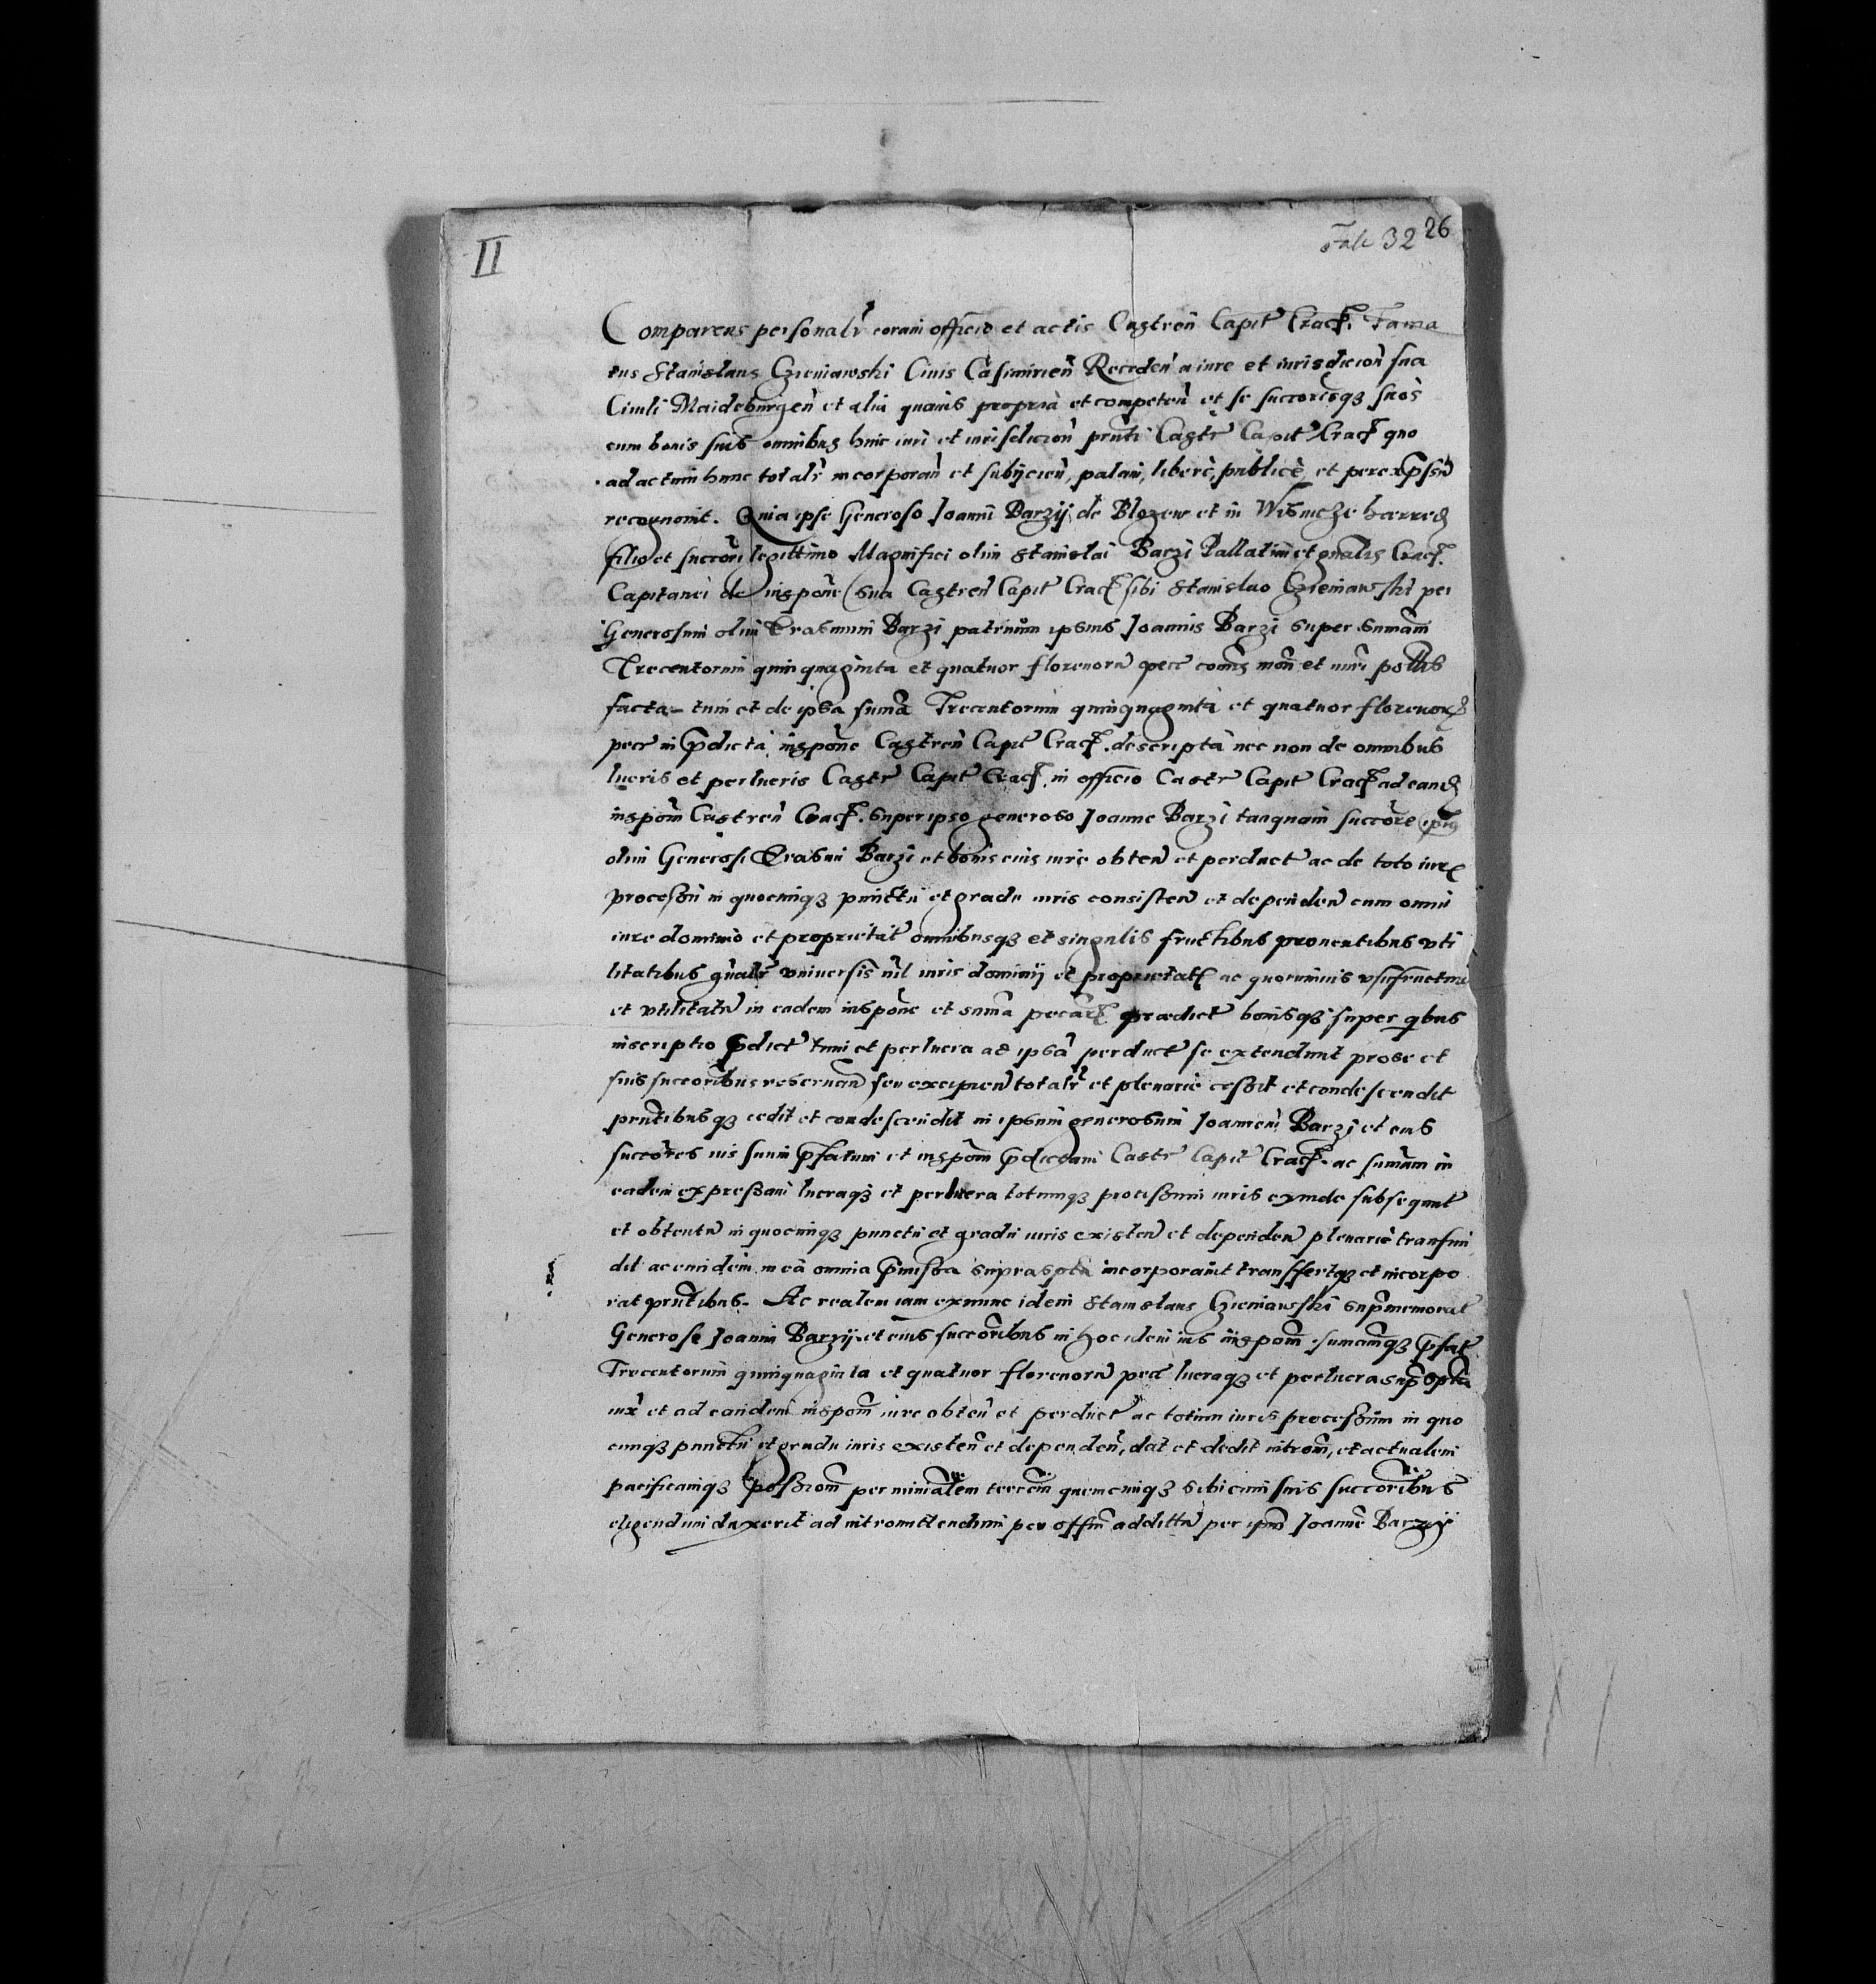 II
Fali 32 26
Comparens personalr coram officio et actis Castren Capit Crac. Fama
tus Stanislaus Czieniawski Civis Casimirien Receden a iure et iurisdicion sua
Civili Maideburgen et alia quavis propria et competen et se succoresq3 suos
cum bonis suis omnibus huic iuri et iurisdicion pnti Castr Capit Crac quo
ad actum hunc totalr incorporan et subijcien, palam, libere, publice, et per expssu
recognovit. Quia ipse Generoso Joanni Barzij de Blozew et in Wismicze haered
filio et succori legittimo Magnifici olim Stanislai Barzi Pallatini et gnalis Crac.
Capitanei de inspone sua Castren Capit Crac sibi Stanislao Czieniawski per
Generosum olim Erasmum Barzi patruum ipsius Joannis Barzi super summam
Trecentorum quinquaginta et quatuor florenoru pecc comis mon et nuri pollis
facta tum et de ipsa suma Trecentorum quinquaginta et quatuor florenor
pec in pdicta inspone Castren Capit Crac. descripta nec non de omnibus
lucris et perlucris Castr Capit Crac. in officio Castr Capit Crac ad eand
inspom Castren Crac. super ipso generoso Joanne Barzi tanquam succore ipius
olim Generosi Erasmi Barzi et bonis eius iure obten et perduct ac de toto iure
processu in quocunq3 punctu et gradu iuris consisten et dependen cum omni
iure dominio et proprietat omnibusq3 et singulis fructibus proventibus uti
litatibus gnalr universis nil iuris dominij et proprietat ac quorumvis usufructuu
et utilitatu in eadem inspone et suma pecar praedict bonisq3 super qbus
inscriptio pdict tum et perlucra ad ipsa perduct se extendunt pro se et
suis succoribus reservan seu excipien totalr et plenarie cessit et condescendit
pntibusq3 cedit et condescendit in ipsum generosum Joannem Barzj et eius
succores ius suum pfatum et inspom pdictam Castr Capit Crac. ac sumam in
eadem expressam lucraq3 et perlucra totumq3 processum iuris exinde subsequut
et obtentu in quocunq3 punctu et gradu iuris existen et dependen plenarie transfun
dit ac eundem in ea omnia pmissa suprasptа incorporavit transffertq3 et incorpo
rat pntibus. Ac realem iam exnunc idem Stanislaus Czieniawski supmemorat
Generoso Joanni Barzij et eius succoribus in hoc idem ius inspom sumamq3 pfat
Trecentorum quinquaginta et quatuor florenoru pec lucraq3 et perlucra supspta
iux et ad eandem inspom iure obten et perduct ac totum iuris processum in quo
cunq3 punctu et gradu iuris existen et dependen, dat et dedit introm, et actualem
pacificamq3 possiom per minialem terrem quemcunq3 sibi cum suis succoribus
eligendum duxerit ad intromittendum per offm additu per ipm Joanne Barzij